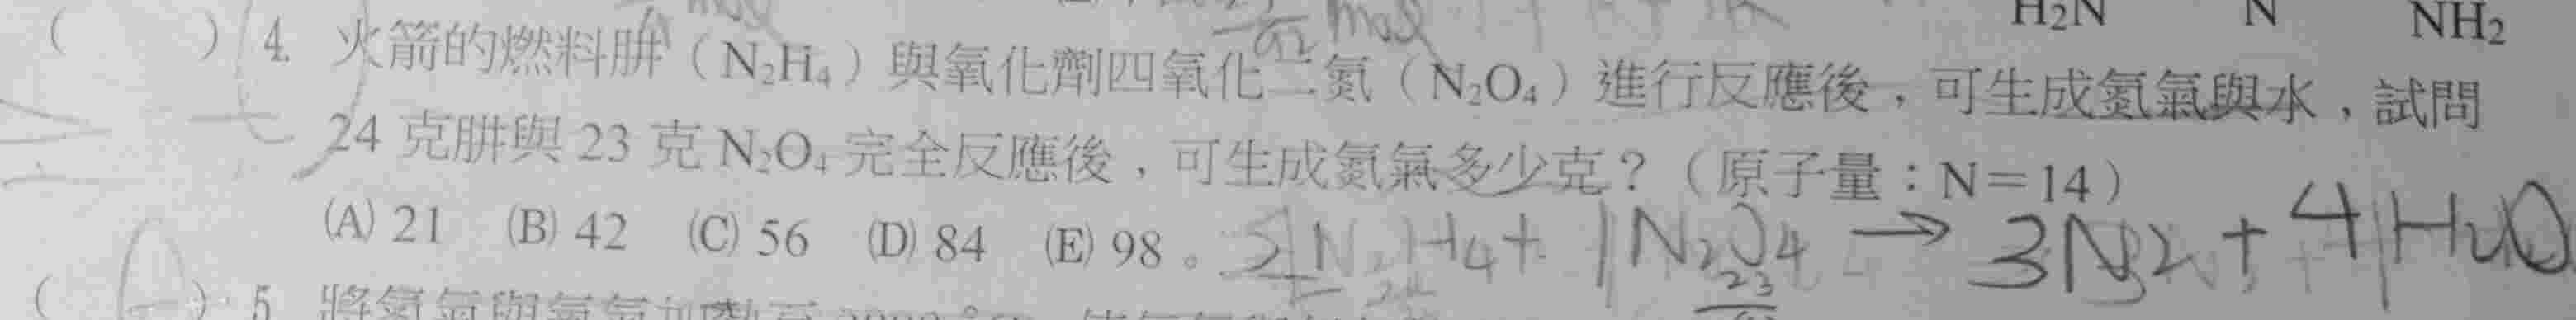 H₂N N NH₂
mol
( ) 4. 火箭的燃料肼(N₂H₄)與氧化劑四氧化二氮(N₂O₄)進行反應後,可生成氮氣與水,試問
24 克肼與 23 克 N₂O₄ 完全反應後,可生成氮氣多少克?(原子量:N=14)
(A) 21 (B) 42 (C) 56 (D) 84 (E) 98。
2N₂H₄ + 1N₂O₄ → 3N₂ + 4H₂O
23
( ) 5.